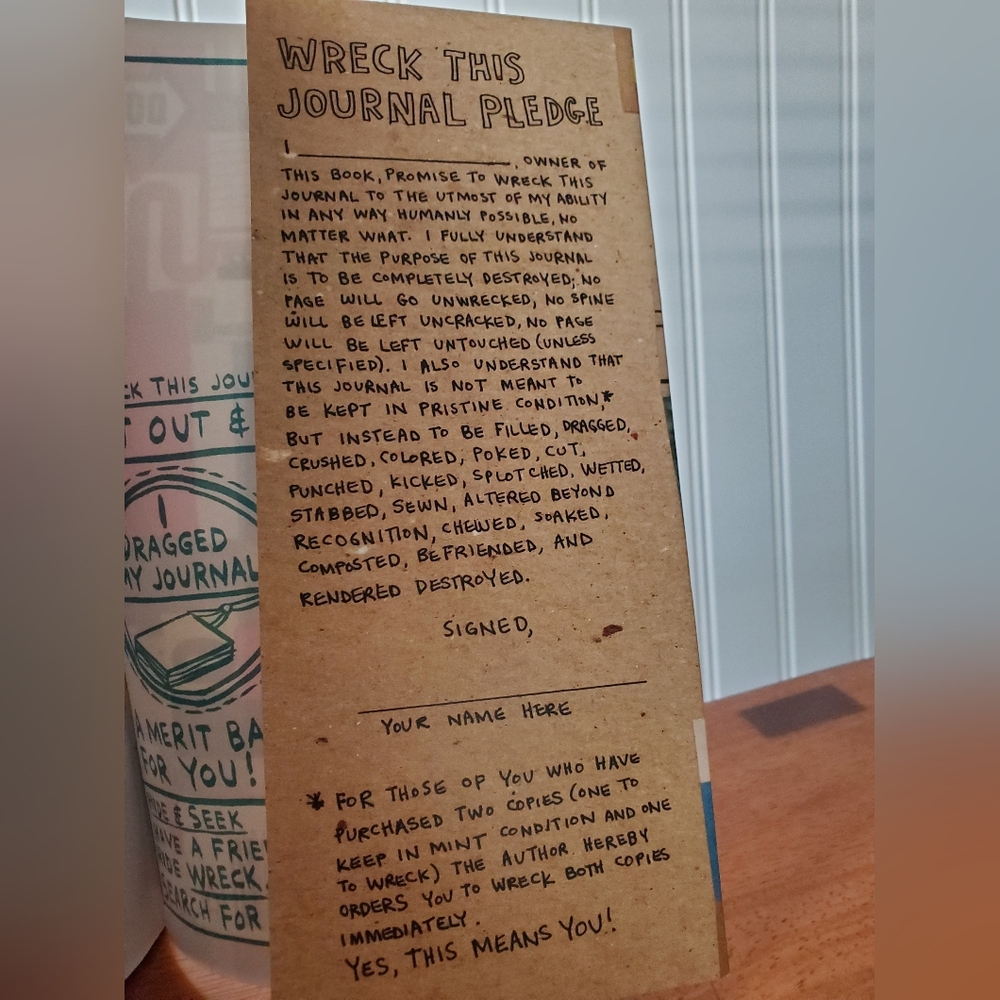 WRECK THIS
JOURNAL PLEDGE
I ____________________, OWNER OF
THIS BOOK, PROMISE TO WRECK THIS
JOURNAL TO THE UTMOST OF MY ABILITY
IN ANY WAY HUMANLY POSSIBLE, NO
MATTER WHAT. I FULLY UNDERSTAND
THAT THE PURPOSE OF THIS JOURNAL
IS TO BE COMPLETELY DESTROYED; NO
PAGE WILL GO UNWRECKED, NO SPINE
WILL BE LEFT UNCRACKED, NO PAGE
WILL BE LEFT UNTOUCHED (UNLESS
SPECIFIED). I ALSO UNDERSTAND THAT
THIS JOURNAL IS NOT MEANT TO
BE KEPT IN PRISTINE CONDITION,*
BUT INSTEAD TO BE FILLED, DRAGGED,
CRUSHED, COLORED, POKED, CUT,
PUNCHED, KICKED, SPLOTCHED, WETTED,
STABBED, SEWN, ALTERED BEYOND
RECOGNITION, CHEWED, SOAKED,
COMPOSTED, BEFRIENDED, AND
RENDERED DESTROYED.
SIGNED,
YOUR NAME HERE
* FOR THOSE OF YOU WHO HAVE
PURCHASED TWO COPIES (ONE TO
KEEP IN MINT CONDITION AND ONE
TO WRECK) THE AUTHOR HEREBY
ORDERS YOU TO WRECK BOTH COPIES
IMMEDIATELY.
YES, THIS MEANS YOU!
THIS
OUT &
I
DRAGGED
MY JOURNAL
A MERIT
FOR YOU!
& SEEK
A
WRECK
FOR